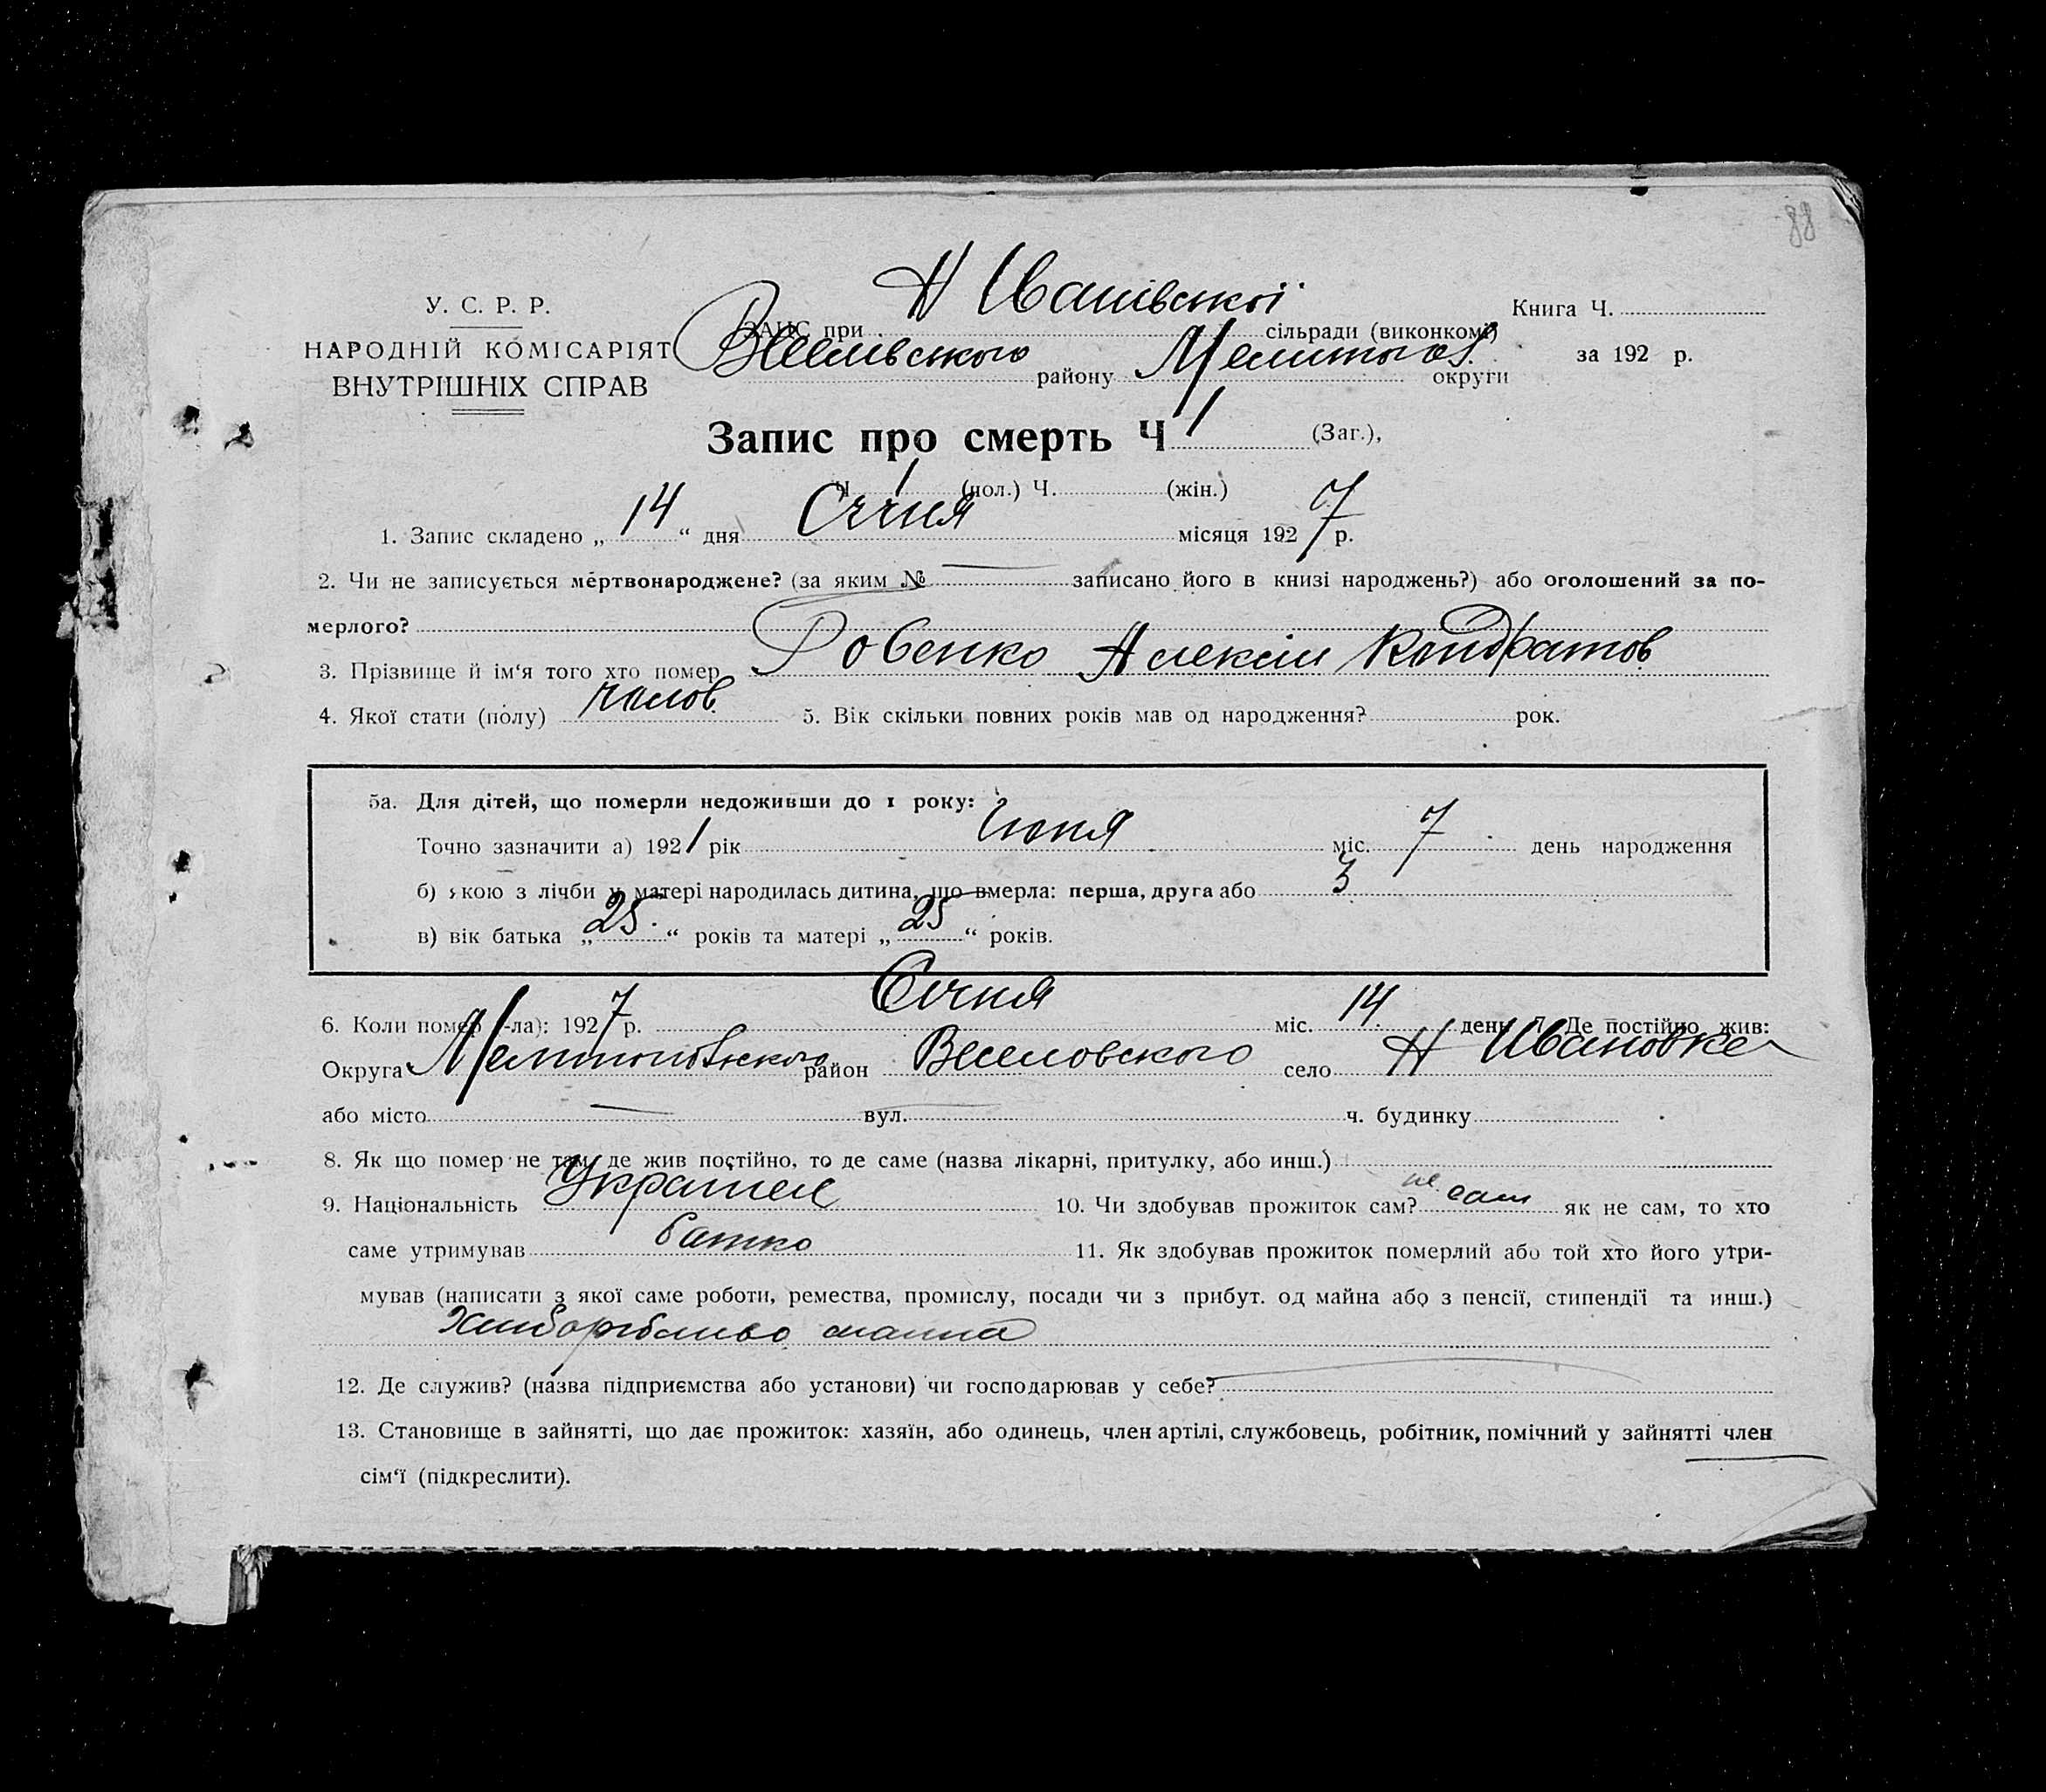 88
Н Іванівської
У. С. Р. Р.
ЗАГС при сільради (виконкомі) Книга Ч.
НАРОДНІЙ КОМІСАРІЯТ
ВНУТРІШНІХ СПРАВ
Веселівського району Мелитоп округи за 192 р.
Запис про смерть Ч 1 (Заг.),
Ч 1 (чол.) Ч. (жін.)
1. Запис складено „ 14 “ дня Січня місяця 192 7 р.
2. Чи не записується мертвонароджене? (за яким № — записано його в книзі народжень?) або оголошений за по-
мерлого?
3. Прізвище й ім'я того хто помер Кондратов
4. Якої стати (полу) чолов. 5. Вік скільки повних років мав од народження? рок.
5а. Для дітей, що померли недоживши до 1 року:
Точно зазначити а) 192 рік Июня міс. 7 день народження
б) якою з лічби у матері народилась дитина, що вмерла: перша, друга або 3
в) вік батька „ 25 “ років та матері „ 25 “ років.
6. Коли помер (-ла): 192 7 р. Січня міс. 14 день 7. Де постійно жив:
Округа район Веселовского село Н Ивановке
або місто — вул. ч. будинку
8. Як що помер не там, де жив постійно, то де саме (назва лікарні, притулку, або инш.)
9. Національність 10. Чи здобував прожиток сам? не сам як не сам, то хто
саме утримував батко 11. Як здобував прожиток померлий або той хто його утри-
мував (написати з якої саме роботи, ремества, промислу, посади чи з прибут. од майна або з пенсії, стипендії та инш.)
12. Де служив? (назва підприємства або установи) чи господарював у себе?
13. Становище в зайнятті, що дає прожиток: хазяїн, або одинець, член артілі, службовець, робітник, помічний у зайнятті член
сім'ї (підкреслити).